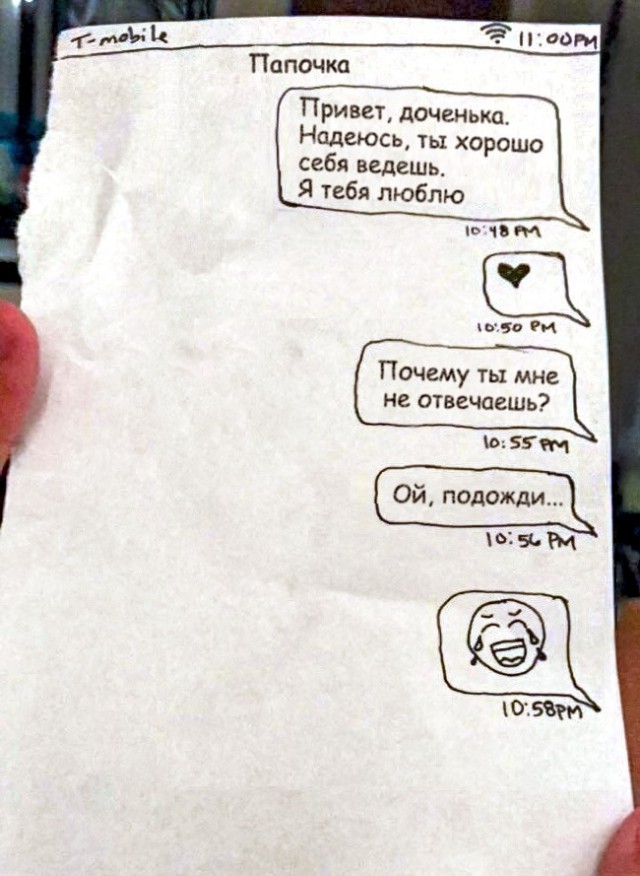 T-mobile 11:00PM
Папочка
Привет, доченька.
Надеюсь, ты хорошо
себя ведешь.
Я тебя люблю
10:48 PM
10:50 PM
Почему ты мне
не отвечаешь?
10:55 PM
Ой, подожди...
10:56 PM
10:58PM